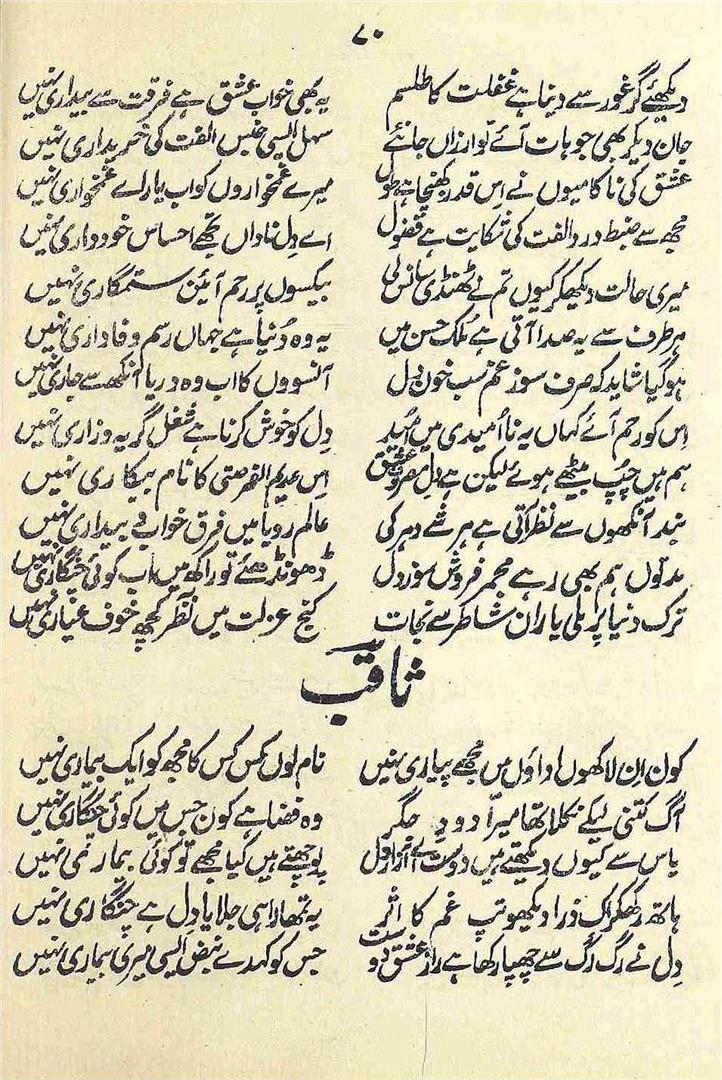 ۷۰
دیکھئے گر غور سے دنیا ہے غفلت کا طلسم یہ بھی خواب عشق ہے فرقت سے بیداری نہیں
جان دیکر بھی جو ہات آئے تو ارزاں جانئے سہل ایسی جنس الفت کی خریداری نہیں
عشق کی ناکامیوں نے اس قدر کھنچا ہے طول میرے غمخواروں کو اب یارائے غمخواری نہیں
مجھ سے ضبط درد الفت کی شکایت ہے فضول اے دلِ ناداں تجھے احساس خودداری نہیں
میری حالت دیکھکر کیوں تم نے ٹھنڈی سانس لی بیکسوں پر رحم آئین ستمگاری نہیں
ہر طرف سے یہ صدا آتی ہے مُلک حسن میں یہ وہ دُنیا ہے جہاں رسم وفاداری نہیں
ہو گیا شاید کہ صرف سوز غم سب خون دل آنسووں کا اب وہ دریا آنکھ سے جاری نہیں
اِس کو رحم آئے کہاں یہ نا اُمیدی میں اُمید دِل کو خوش کرنا ہے شُغل گریہ وزاری نہیں
ہم ہیں چُپ بیٹھے ہوئے لیکن ہے دل مصروف عشق اِس عدیم الفرصتی کا نام بیکاری نہیں
بند آنکھوں سے نظر آتی ہے ہر شے دہر کی عالم رویا میں فرق خواب و بیداری نہیں
مدتوں ہم بھی رہے مجمر فروش سوز دل ڈھونڈھئے تو راکھ میں اب کوئی چنگاری نہیں
ترک دنیا پر ملی یاران شاطر سے نجات کنج عزلت میں نظر کچھ خوف عیاری نہیں
ثاقب
کون اِن لاکھوں اداؤں میں مجھے پیاری نہیں نام لوں کس کس کا مجھ کو ایک بیماری نہیں
آگ کتنی لیکے نکلا تھا میرا دودِ جگر وہ فضا ہے کون جس میں کوئی چنگاری نہیں
یاس سے کیوں دیکھتے ہیں دوست آزار دل پوچھتے ہیں کیا مجھے تو کوئی بیماری نہیں
ہاتھ رکھکر اک ذرا دیکھو تپ غم کا اثر یہ تمھارا ہی جلایا دِل ہے چنگاری نہیں
دِل نے رگ رگ سے چھپا رکھا ہے راز عشق دوست جس کو کہدے نبض ایسی میری بیماری نہیں